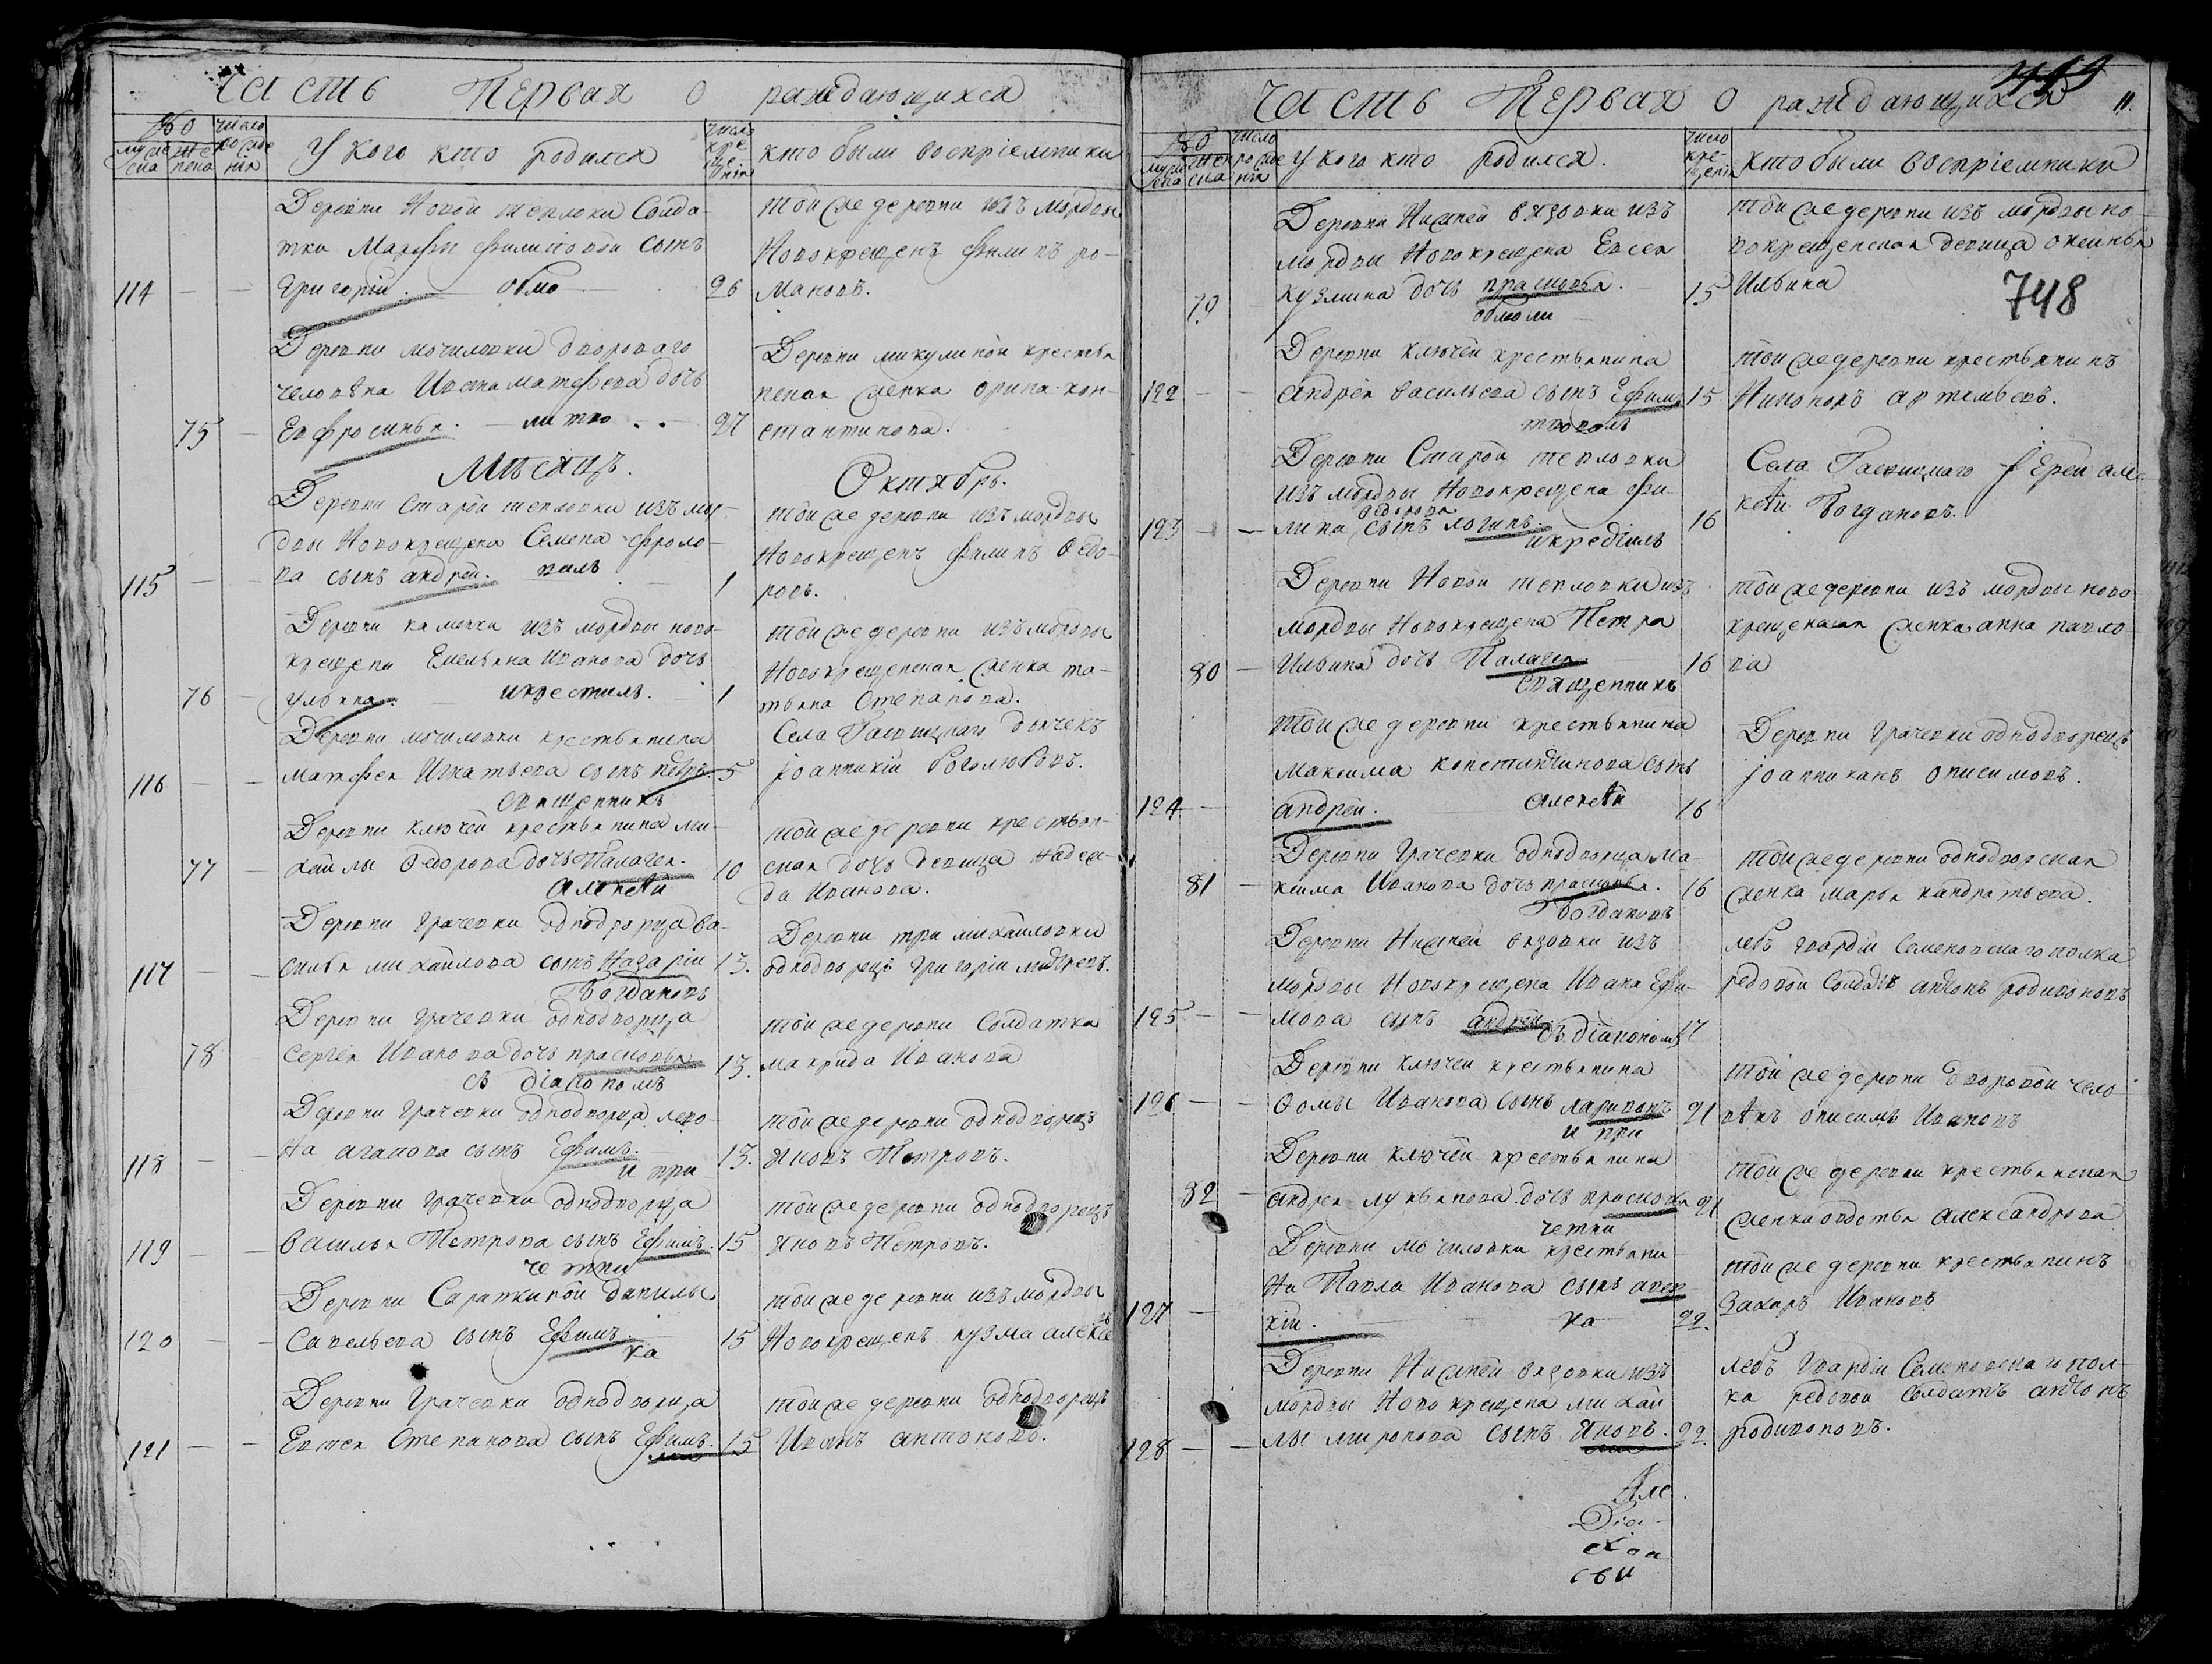 часть Первая о раждающихся
Число
У кого кто родился
кто были воспріемники
Деревни Новой теплоки Солда-
тки Марфы филиповой сынъ
114 — — Григорій.
26
той же деревни изъ мордвы
Новокрещенъ филипъ ро-
мановъ.
Деревни мочиловки двороваго
человѣка Ивана матфева дочь
75 — Евфросинья.
27
Деревни микулиной крестья
нская женка орина кон-
стантинова.
Мѣсяцъ. Октябрь.
Деревни Старой тепловки изъ мор-
двы Новокрещена Семена фроло-
115 — — ва сынъ андрей.
1
той же деревни изъ мордвы
Новокрещенъ филипъ Ѳедо-
ровъ.
Деревни каменки изъ мордвы ново-
крещена Емельяна Иванова дочь
76 — ульяна. икрестилъ.
1
той же деревни изъ мордвы
Новокрещенская женка та-
тьяна Степанова.
Деревни мочиловки крестьянина
116 — — матфея Игнатьева сынъ петръ 5
священникъ
Села дьячекъ
Іоанникій боголюбовъ.
Деревни ключей крестьянина ми-
77 — хайлы Ѳедорова дочь Палагея. 10
алексѣй
той же деревни крестьян-
ская дочь девица Надеж-
да Иванова.
Деревни грачевки однодворца ва-
117 — — силья михайлова сынъ Назарій 13.
богдановъ
Деревни михайловки
однодворецъ Григорій
Деревни грачевки однодворца
78 — Сергея Иванова дочь прасковья 13.
съ діакономъ
той же деревни Солдатка
макрида Иванова
Деревни грачевки однодворца лево-
118 — — на агапова сынъ Ефимъ. 13.
и при
той же деревни однодворецъ
яковъ Петровъ.
Деревни грачевки однодворца
119 — — василья Петрова сынъ Ефимъ. 15
четни
той же деревни однодворецъ
яковъ Петровъ.
Деревни Сараткиной данилы
120 — — Савельева сынъ Ефимъ. 15
ка
той же деревни изъ мордвы
Новокрещенъ кузма алексе
Деревни грачевки однодворца
121 — — Евтея Степанова сынъ Ефимъ. 15
той же деревни однодворецъ
Иванъ антоновъ.
11.
часть Первая о раждающихся
У кого кто родился.
кто были воспріемники
748
Деревни Нижней вязовки изъ
мордвы Новокрещена Евсея
79 кузмина дочь прасковья. 15
той же деревни изъ мордвы но-
вокрещенская девица
Ильина
Деревни ключей крестьянина
122 — — андрея васильева сынъ Ефимъ 15
той же деревни крестьянинъ
Никоноръ артемьевъ.
Деревни Старой тепловки
изъ мордвы Новокрещена фи-
Ѳедорова
123 — — липа сынъ логинъ. 16
Села Іерей але-
ксѣй Богдановъ.
Деревни Новой тепловки изъ
мордвы Новокрещена Петра
80 — Ильина дочь Палагея 16
священникъ
той же деревни изъ мордвы ново-
крещенская женка анна павло-
ва
той же деревни крестьянина
максима константинова сынъ
124 — андрей. алексѣй 16
Деревни грачевки однодворецъ
Іоанникий онисимовъ.
Деревни грачевки однодворца ма-
81 — ксима Иванова дочь прасковья. 16
богдановъ
той же деревни однодворская
женка марья кандратьева.
Деревни Нижней вязовки изъ
мордвы Новокрещена Ивана Ефи-
125 — — мова сынъ андрей 17
съ діакономъ
лебъ гвардіи Семеновскаго полка
редовой Солдатъ антонъ родивоновъ
Деревни ключей крестьянина
126 — — Ѳомы Иванова сынъ ларивонъ 21
и при
той же деревни дворовой чело-
вѣкъ онисимъ Ивановъ
Деревни ключей крестьянина
82 — андрея лукьянова дочь прасковья 21
четни
той же деревни крестьянская
женка александрова
Деревни мочиловки крестьяни-
на Павла Иванова сынъ авер-
127 — кій. ка 22.
той же деревни крестьянинъ
Захаръ Ивановъ
Деревни Нижней вязовки изъ
мордвы Новокрещена михай
128 — — лы миронова сынъ яковъ. 22.
лебъ гвардіи Семеновскаго пол-
ка редовой солдатъ антонъ
родивоновъ.
Але
Діа-
свя